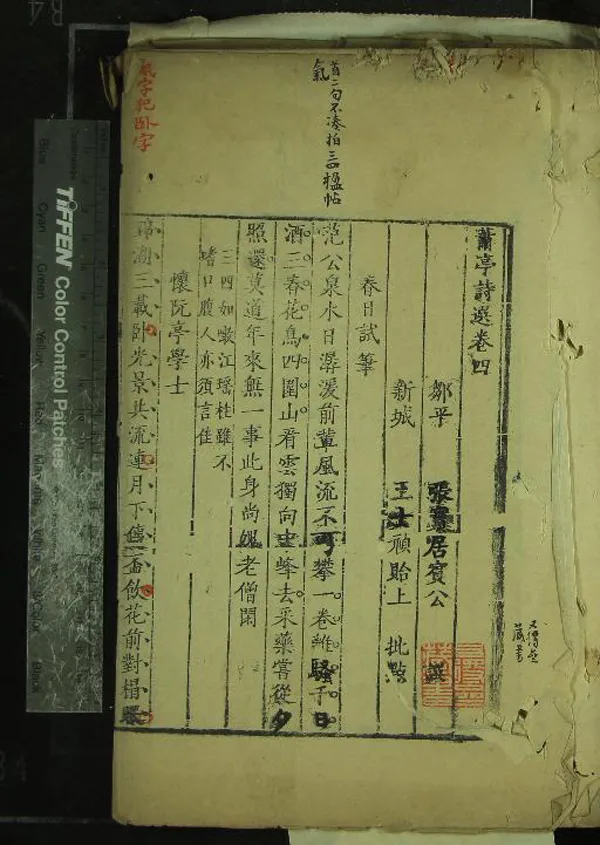 蕭亭詩選卷四
鄒平 張實居賓公
新城 王士禎貽上 批點
春日試筆
范公泉水日潺湲前輩風流不可攀一卷離騷千日
酒三春花鳥四圍山看雲獨向峰去采藥嘗從夕
照還莫道年來無一事此身尚老僧閑
三四如噉江瑤柱雖不
嗜口腹人亦須言佳
懷阮亭學士
湖三載卧光景共流連月下傳盃飲花前對榻
首二句不湊拍三楹帖
氣
氣字犯卧字
藏書
TIFFEN Color Control Patches
Blue
Cyan
Green
Yellow
Red
Magenta
White
3/Color
Black